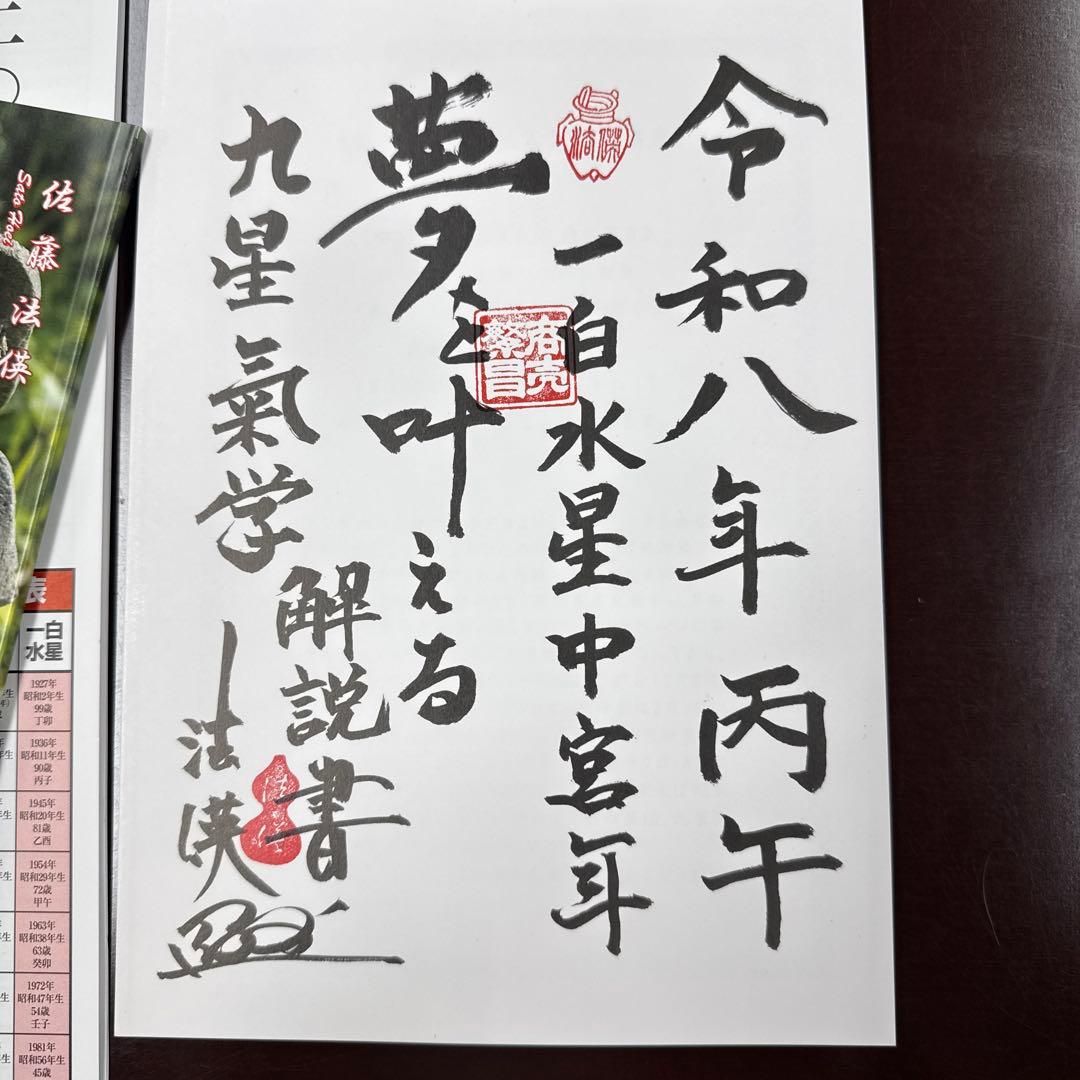 令和八年丙午
一白水星中宮年
夢を叶える
九星氣学
解説書
法偀
商売
繁昌
佐藤法偀
表
一白
水星
1927年
昭和2年生
99歳
丁卯
1936年
昭和11年生
90歳
丙子
1945年
昭和20年生
81歳
乙酉
1954年
昭和29年生
72歳
甲午
1963年
昭和38年生
63歳
癸卯
1972年
昭和47年生
54歳
壬子
1981年
昭和56年生
45歳